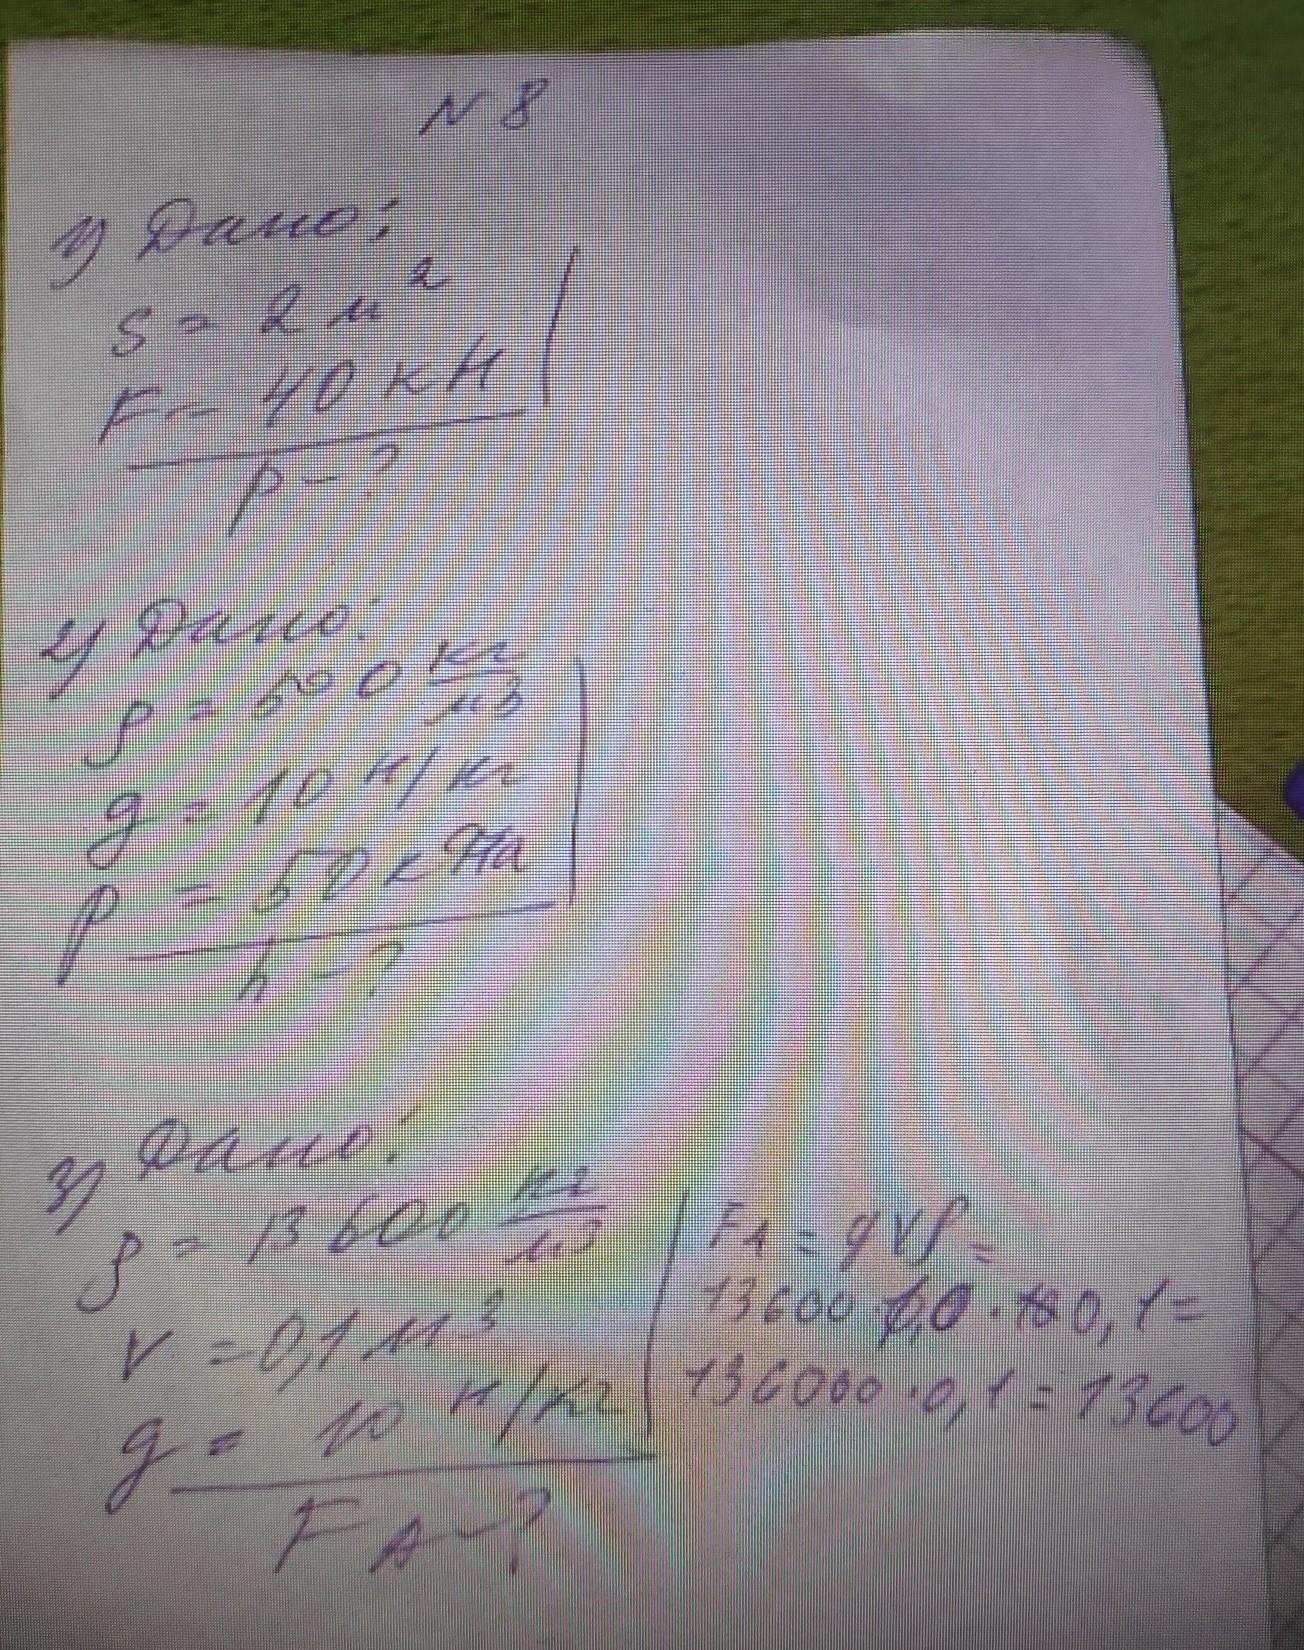 N 8
1) Дано:
S = 2 м²
F = 40 кН
p - ?
2) Дано:
ρ = 500 кг/м³
g = 10 Н/кг
p = 50 кПа
h - ?
3) Дано:
ρ = 13600 кг/м³
V = 0,1 м³
g = 10 Н/кг
F A - ?
F A = gVρ =
13600 · 10 · 0,1 =
136000 · 0,1 = 13600